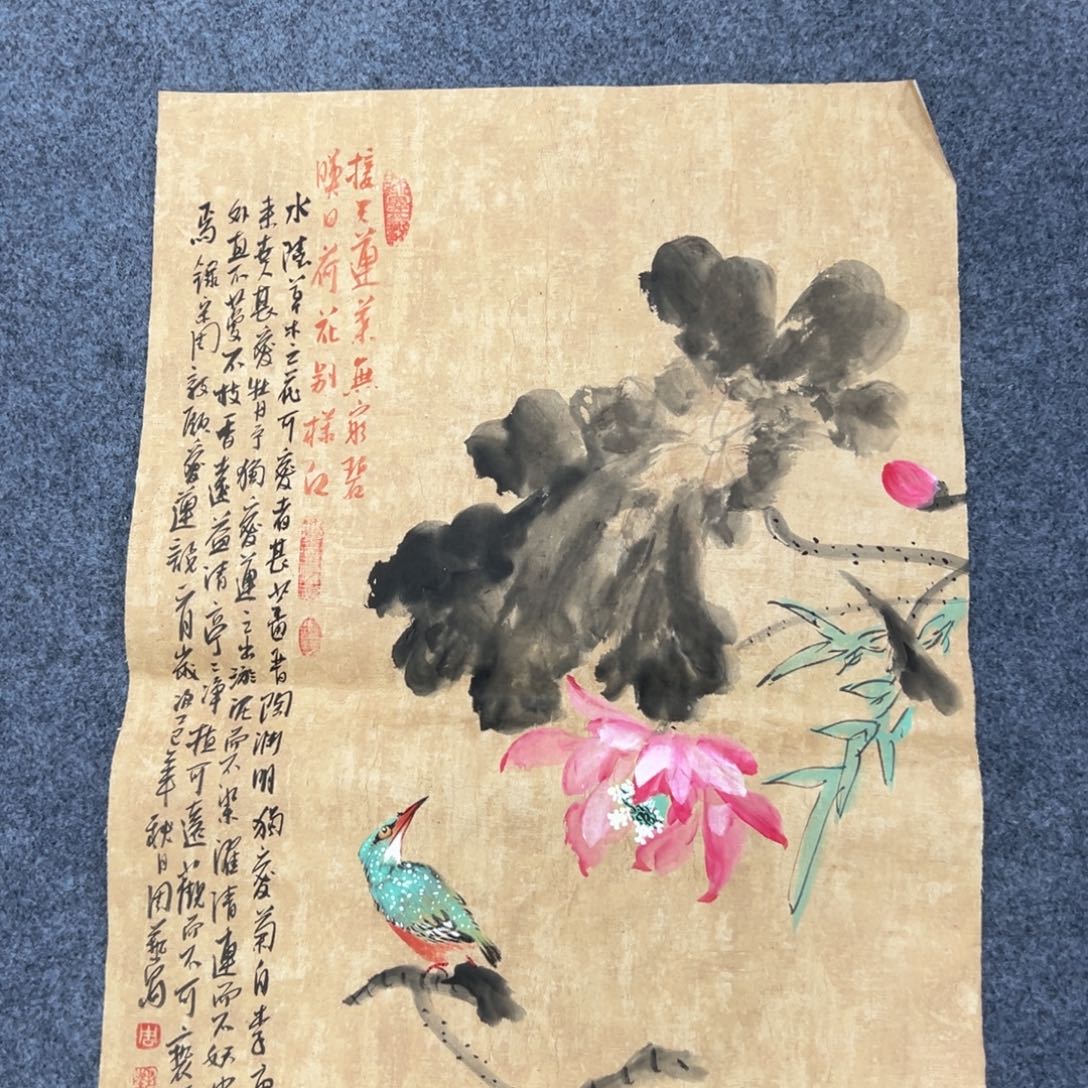 接天蓮葉無窮碧
映日荷花别樣红
水陸草木之花可愛者甚蕃晋陶渊明獨愛菊自李唐
来甚愛牡丹予獨愛蓮之出淤泥而不染濯清漣而不妖中
外直不蔓不枝香遠益清亭亭淨植可遠觀而不可褻
焉錄宋周敦頤愛蓮説歲次巳年秋月周藝寫
周